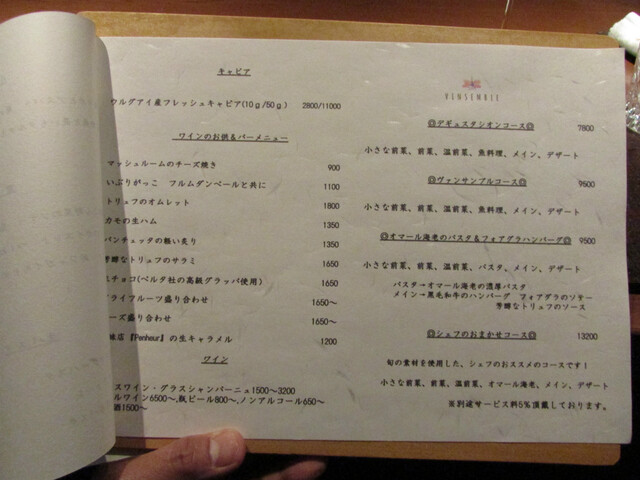 キャビア
ウルグアイ産フレッシュキャビア(10g/50g) 2800/11000
ワインのお供&バーメニュー
マッシュルームのチーズ焼き 900
いぶりがっこ フルムダンベールと共に 1100
トリュフのオムレット 1800
カモの生ハム 1350
パンチェッタの軽い炙り 1350
芳醇なトリュフのサラミ 1650
チョコ(ベルタ社の高級グラッパ使用) 1650
ライフルーツ盛り合わせ 1650～
ーズ盛り合わせ 1650～
店『Penheur』の生キャラメル 1200
ワイン
スワイン・グラスシャンパーニュ1500～3200
ルワイン6500～,瓶ビール800～,ノンアルコール650～
酒1500～
VINSEMBLE
◎デギュスタシオンコース◎ 7800
小さな前菜、前菜、温前菜、魚料理、メイン、デザート
◎ヴァンサンブルコース◎ 9500
小さな前菜、前菜、温前菜、魚料理、メイン、デザート
◎オマール海老のパスタ&フォアグラハンバーグ◎ 9500
小さな前菜、前菜、温前菜、パスタ、メイン、デザート
パスタ→オマール海老の濃厚パスタ
メイン→黒毛和牛のハンバーグ フォアグラのソテー
芳醇なトリュフのソース
◎シェフのおまかせコース◎ 13200
旬の素材を使用した、シェフのおススメのコースです!
小さな前菜、前菜、温前菜、オマール海老、メイン、デザート
※別途サービス料5%頂戴しております。